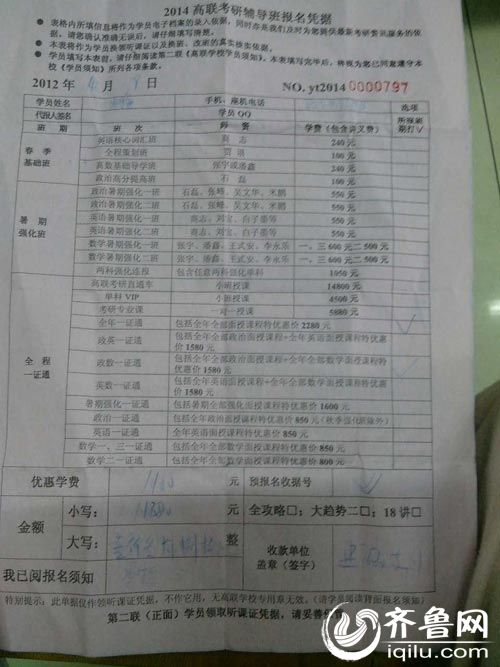 2014 高联考研辅导班报名凭据
● 表格内所填信息将作为学员电子档案的录入依据，同时亦是我们及时为您提供最新考研资讯服务的依据，请您确认准确无误后，请仔细填写清楚。
● 本表格将作为员换领听课证以及换班、改班的真实核实依据。
● 学员填写本表前，请仔细阅读第二联《高联学校学员须知》，本表填写完毕后，将视为您已同意遵守本校《学员须知》所列各项条款。
2012 年 4 月 9 日 NO. yt2014 0000797
学员姓名 手机、座机电话 选项
代报人签名 学员 QQ 所报班期打√
班 期 班 次 师 资 学费（包含讲义费）
春 季 基础班
英语核心词汇班 商 志 240 元
全程策划班 100 元
高数基础导学班 张宇或潘鑫 240 元
政治高分提高班 石 磊 100 元
暑 期 强化班
政治暑期强化一班 石磊、张峰、吴文华、米鹏 550 元
政治暑期强化二班 石磊、张峰、吴文华、米鹏 550 元
英语暑期强化一班 商志、刘宝、白子墨等 550 元
英语暑期强化二班 商志、刘宝、白子墨等 550 元
数学暑期强化一班 张宇、潘鑫、王式安、李永乐 一、三 600 元二 500 元
数学暑期强化二班 张宇、潘鑫、王式安、李永乐 一、三 600 元二 500 元
两科强化连报 包含任意两科强化单科 1050 元
全 程 一证通
高联考研直通车 小班授课 14800 元
单科 VIP 小班授课 4500 元
考研专业课 一对一授课 5880 元
全年一证通 包括全年全部面授课程特优惠价 2280 元
政英一证通 包括全年全部政治面授课程+全年全部英语面授课程特优惠价 1580 元
政数一证通 包括全年全部政治面授课程+全年全部数学面授课程特优惠价 1580 元
英数一证通 包括全年英语面授课程+全年全部数学面授课程特优惠价 1580 元
暑期强化一证通 包括暑期全部强化面授课程特优惠价 1600 元
政治一证通 包括全年政治面授课程特优惠价 850 元（秋季强化班除外）
英语一证通 全年英语面授课程特优惠价 850 元
数学一、三一证通 包括全年全部数学面授课程特优惠价 850 元
数学二一证通 包括全年全部数学面授课程特优惠价 800 元
优惠学费 元 预报名收据号
金额 小写： 元 全攻略□；大趋势二□；18 讲□
大写： 整 收款单位 盖章（签字）
我已阅报名须知
特别提示：此单据仅作领听课证凭据，不作它用，无高联学校专用章无效。（请学员阅读背面报名须知）
第二联（正面）学员领取听课证凭据，请妥善保
齐鲁网